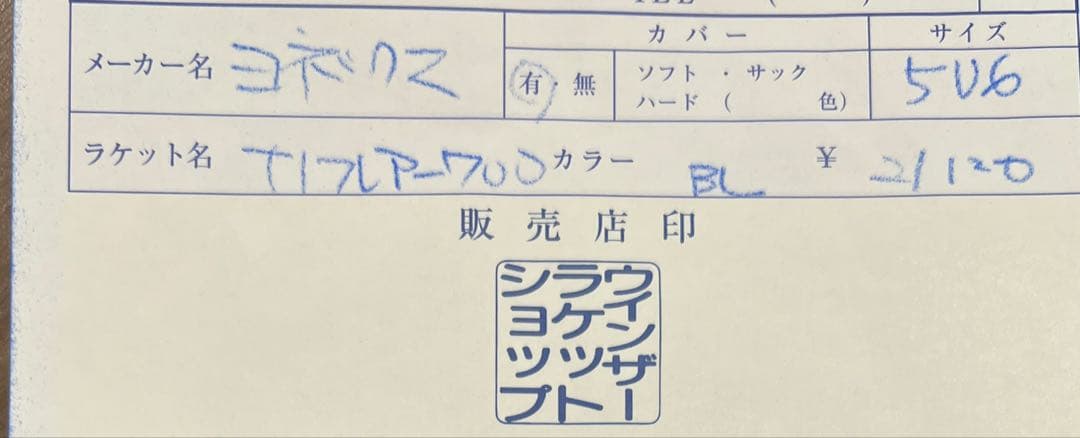 カバー サイズ
メーカー名 ヨネックス 有・無 ソフト ・ サック 5U6
ハード ( 色)
ラケット名 ナノフレアー700 カラー BL ¥ 21120
販売店印
ウインザー
ラケット
ショップ